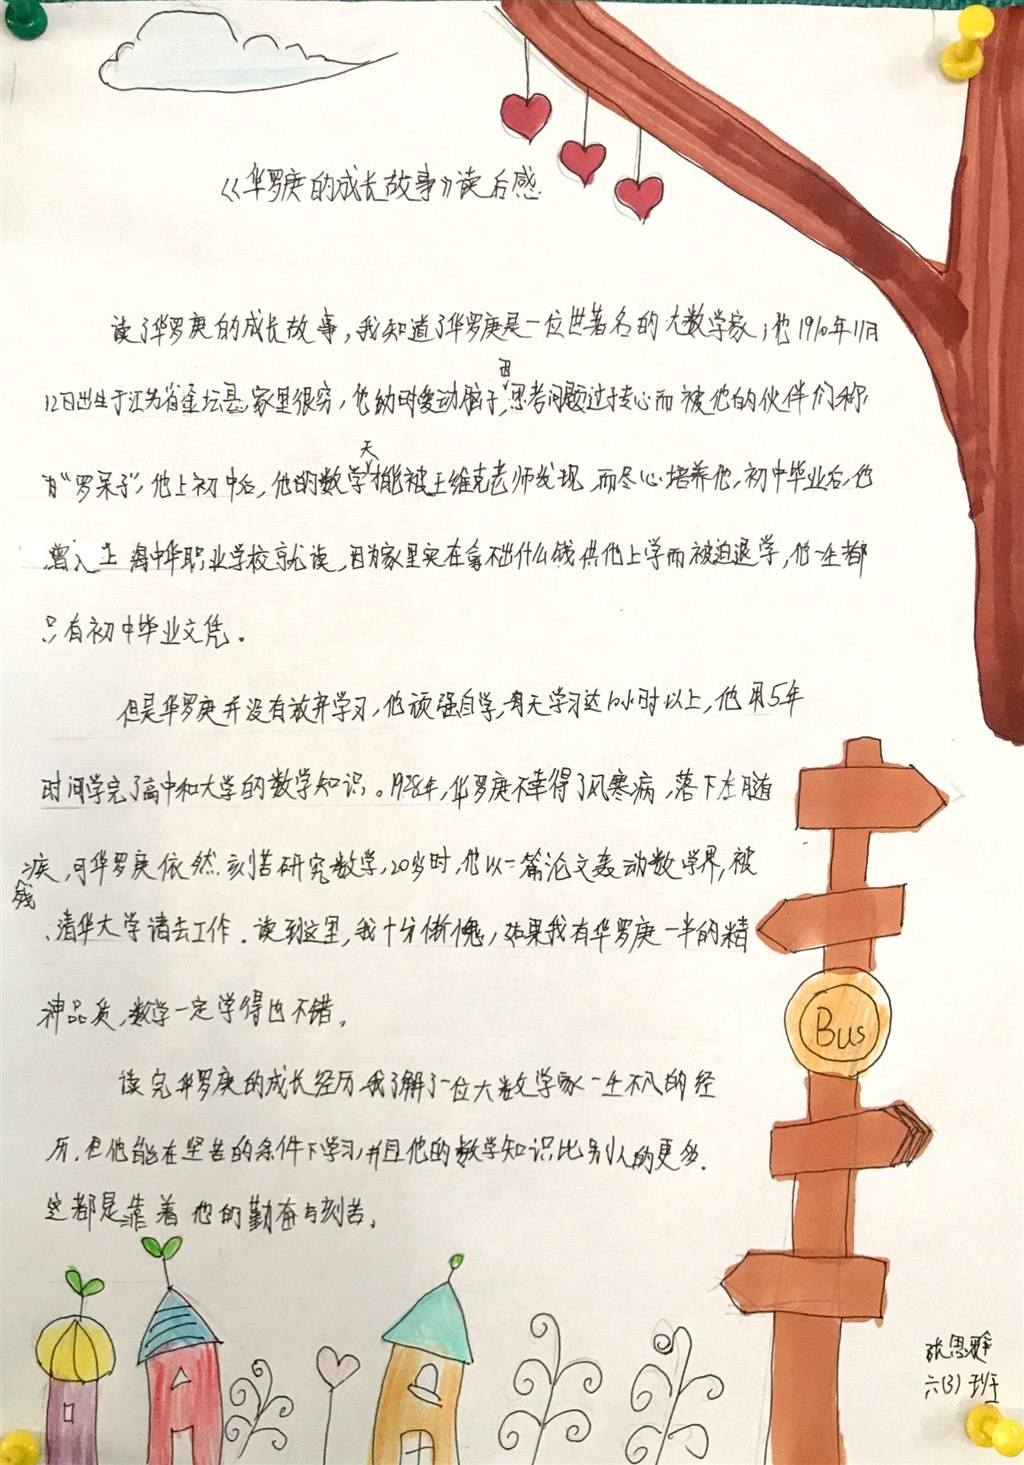 《华罗庚的成长故事》读后感
读了华罗庚的成长故事,我知道了华罗庚是一位世著名的大数学家,他1910年11月
12日出生于江苏省金坛县,家里很穷,他幼时爱动脑子,因思考问题过于专心而被他的伙伴们称
为“罗呆子”,他上初中后,他的数学天才能被王维克老师发现,而尽心培养他,初中毕业后,他
曾入上海中华职业学校就读,因为家里实在拿不出什么钱供他上学而被迫退学,他一生都
只有初中毕业文凭。
但是华罗庚并没有放弃学习,他顽强自学,每天学习达10小时以上,他用5年
时间学完了高中和大学的数学知识。1928年,华罗庚不幸得了风寒病,落下左腿
残疾,可华罗庚依然刻苦研究数学,20岁时,他以一篇论文轰动数学界,被
清华大学请去工作。读到这里,我十分惭愧,如果我有华罗庚一半的精
神品质,数学一定学得也不错。
读完华罗庚的成长经历,我了解了一位大数学家一生不凡的经
历,但他能在坚苦的条件下学习,并且他的数学知识比别人的更多.
这都是靠着他的勤奋与刻苦。
Bus
张思
六(3)班